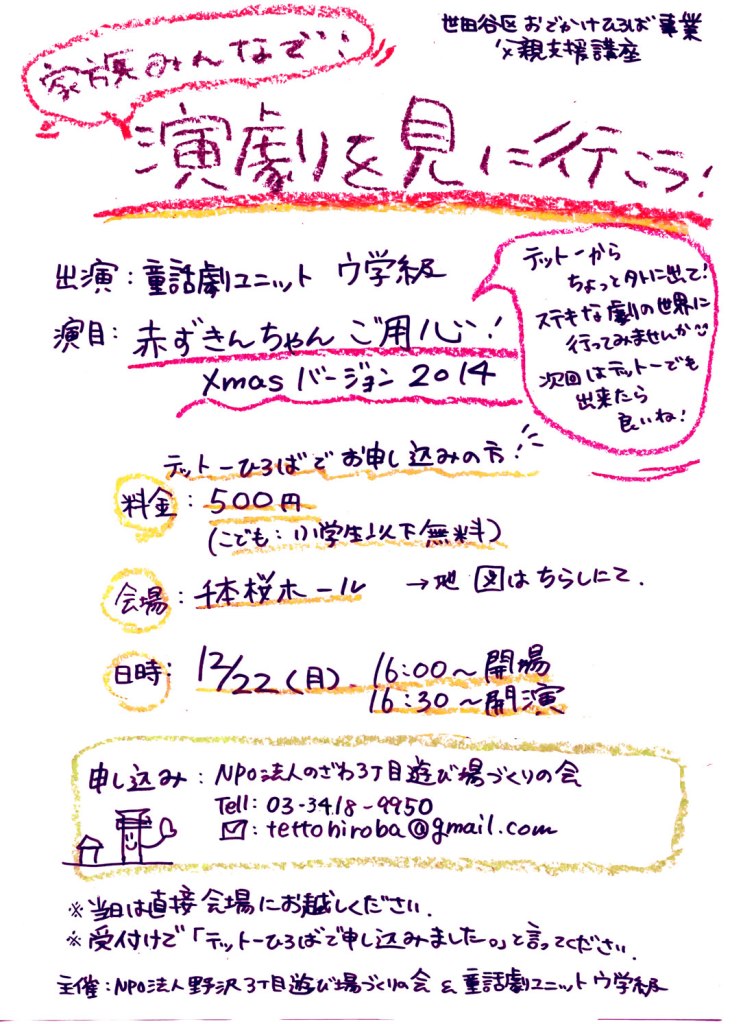 世田谷区 おでかけひろば事業
父親支援講座
家族みんなで!
演劇を見に行こう!
出演:童話劇ユニット ウ学級
演目:赤ずきんちゃんご用心!
Xmasバージョン2014
テットーから
ちょっと外に出て!
ステキな劇の世界に
行ってみませんか
次回はテットーでも
出来たら
良いね!
テットーひろばでお申し込みの方!
料金:500円
(こども:小学生以下無料)
会場:千本桜ホール →地図はちらしにて.
日時:12/22(月) 16:00~開場
16:30~開演
申し込み:NPO法人のざわ3丁目遊び場づくりの会
Tell:03-3418-9950
:tettohiroba@gmail.com
※当日は直接会場にお越しください.
※受付けで「テットーひろばで申し込みました。」と言ってください.
主催:NPO法人野沢3丁目遊び場づくりの会 & 童話劇ユニットウ学級